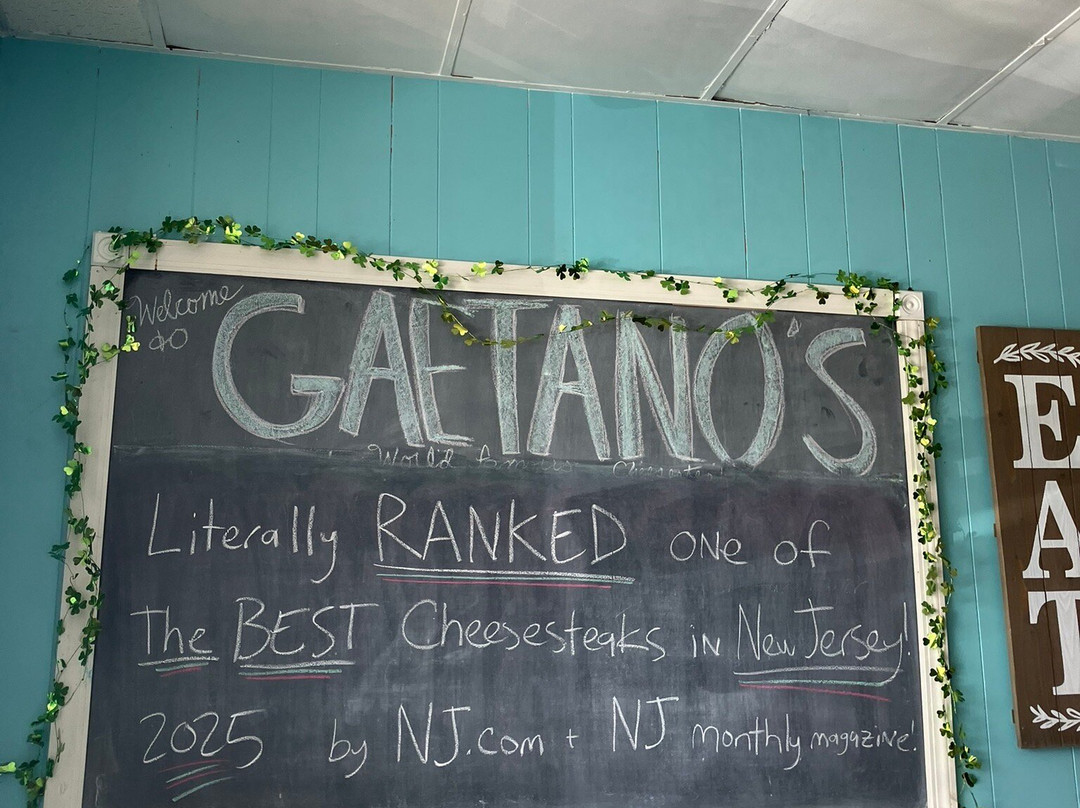 Welcome
to
GAETANO'S
World Famous
Literally RANKED one of
The BEST Cheesesteaks in New Jersey!
2025 by NJ.com + NJ monthly magazine!
EAT